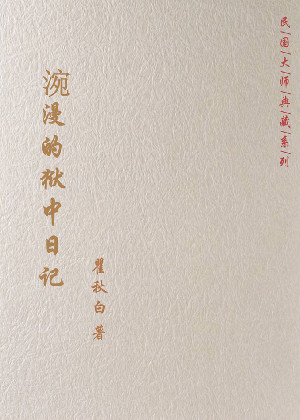 民国大师典藏系列
瞿秋白著
涴漫的狱中日记